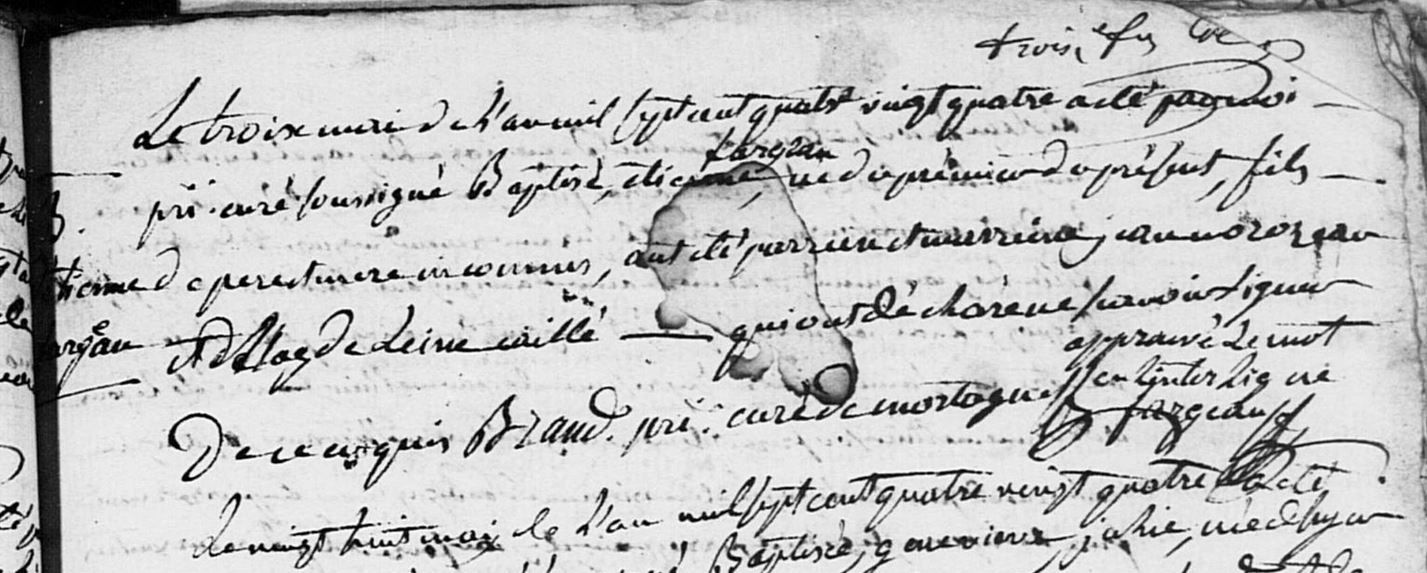 trois
Le troix mai de l'an mil sept cent quatre vingt quatre a été par moi
pri. curé soussigné Baptisé, etienne, fargeau né du premier du présent, fils
etienne de pere et mere inconnus, ont été parrein et marreine jean
fargeau et Magdeleine caillé qui ont déclaré ne savoir signer
approuvé le mot
De ce requis Braud. pri. curé de mortagne en linterligne
fargeau
le vingt huit mai de l'an mil sept cent quatre vingt quatre a été
Baptisée, genevieve, née d'hyer